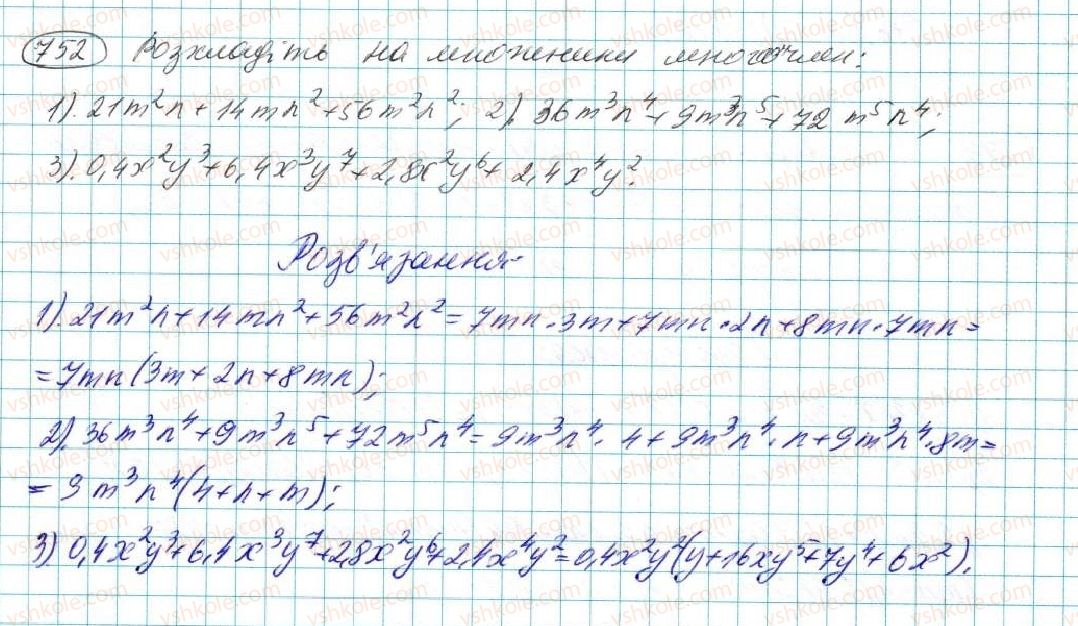 752 Розкладіть на множники многочлен:
1). 21m²n + 14mn² + 56m²n²; 2). 36m³n⁴ + 9m³n⁵ + 72m⁵n⁴;
3). 0,4x²y³ + 6,4x³y⁷ + 2,8x²y⁶ + 2,4x⁴y².
Розв'язання
1). 21m²n + 14mn² + 56m²n² = 7mn · 3m + 7mn · 2n + 8mn · 7mn =
= 7mn (3m + 2n + 8mn);
2). 36m³n⁴ + 9m³n⁵ + 72m⁵n⁴ = 9m³n⁴ · 4 + 9m³n⁴ · n + 9m³n⁴ · 8m =
= 9m³n⁴ (4 + n + m);
3) 0,4x²y³ + 6,4x³y⁷ + 2,8x²y⁶ + 2,4x⁴y² = 0,4x²y²(y + 16xy⁵ + 7y⁴ + 6x²).